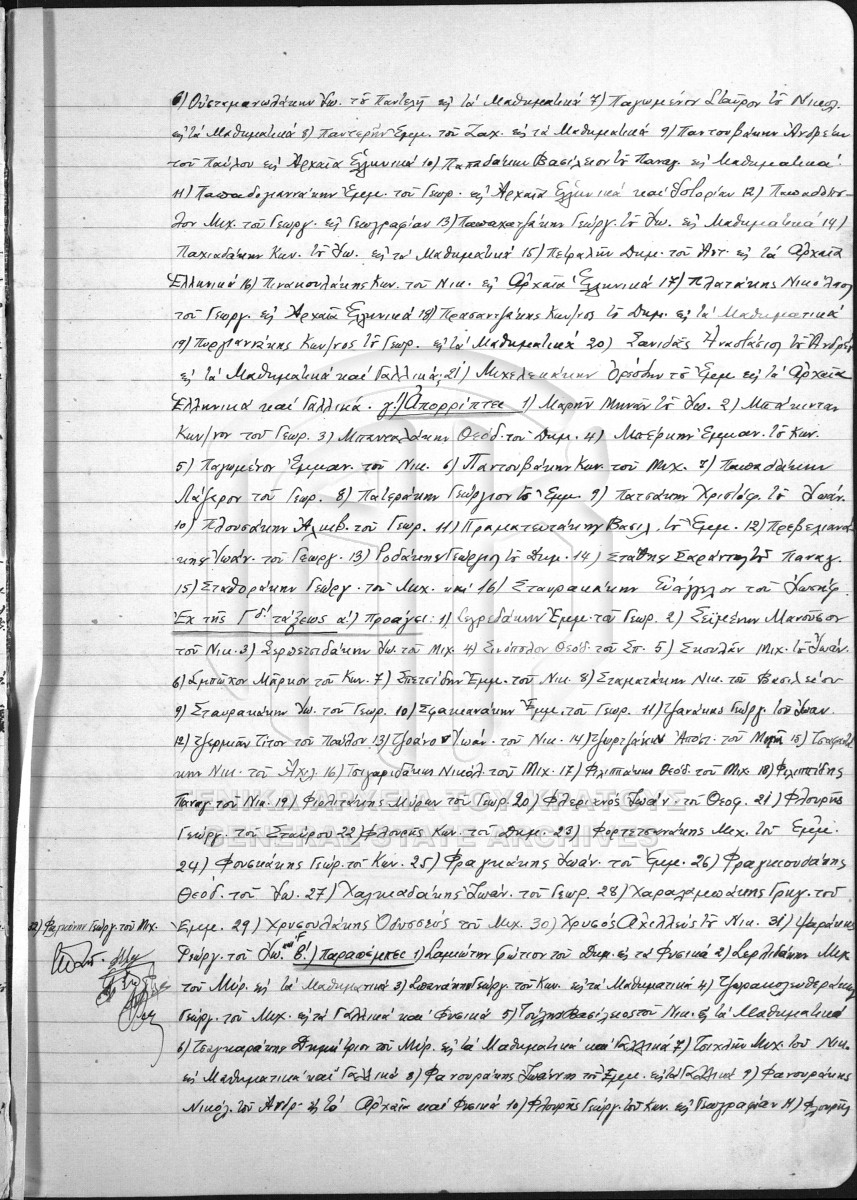 6) Οὐσταμανωλάκην Ἰω. τοῦ Παντελῆ εἰς τὰ Μαθηματικά 7) Παγωμένον Σταῦρον τοῦ Νικολ.
εἰς τὰ Μαθηματικά 8) Παντερῆν Ἐμμ. τοῦ Ζαχ. εἰς τὰ Μαθηματικά 9) Παντουβάκην Ἀνδρέαν
τοῦ Παύλου εἰς Ἀρχαῖα Ἑλληνικά 10) Παπαδάκην Βασίλειον τοῦ Παναγ. εἰς Μαθηματικά
11) Παπαδογιαννάκην Ἐμμ. τοῦ Γεωρ. εἰς Ἀρχαῖα Ἑλληνικά καὶ Ἱστορίαν 12)
Μιχ. τοῦ Γεωργ. εἰς Γεωγραφίαν 13) Παπαχατζάκην Γεώργ. τοῦ Ἰω. εἰς Μαθηματικά 14)
Παχιαδάκην Κων. τοῦ Ἰω. εἰς τὰ Μαθηματικά 15) Πετραλῆν Δημ. τοῦ Ἀντ. εἰς τὰ Ἀρχαῖα
Ἑλληνικά 16) Πινακουλάκης Κων. τοῦ Νικ. εἰς Ἀρχαῖα Ἑλληνικά 17) Πλατάκης Νικόλαος
τοῦ Γεωργ. εἰς Ἀρχαῖα Ἑλληνικά 18) Πρασαντζάκης Κων/νος τοῦ Δημ. εἰς τὰ Μαθηματικά
19) Πυργιαννάκης Κων/νος τοῦ Γεωρ. εἰς τὰ Μαθηματικά 20) Σανιδᾶς Ἀναστάσιος τοῦ Ἀνδρέα
εἰς τὰ Μαθηματικά καὶ Γαλλικά, 21) Μιχελεκάκην Ὀρέστην τοῦ Ἐμμ. εἰς τὰ Ἀρχαῖα
Ἑλληνικά καὶ Γαλλικά. γ') Ἀπορρίπτει 1) Μαρῆν Μηνᾶν τοῦ Ἰω. 2)
Κων/νον τοῦ Γεωρ. 3) Μπαντολάκην Θεόδ. τοῦ Δημ. 4) Μπερκην Ἐμμαν. τοῦ Κων.
5) Παγωμένον Ἐμμαν. τοῦ Νικ. 6) Παντουβάκην Κων. τοῦ Μιχ. 7) Παπαδάκην
Λάζαρον τοῦ Γεωρ. 8) Πατεράκην Γεώργιον τοῦ Ἐμμ. 9) Πατσάκην Χριστόφ. τοῦ Ἰωάν.
10) Πλουσάκην Ἀλκιβ. τοῦ Γεωρ. 11) Πραματευτάκην Βασιλ. τοῦ Ἐμμ. 12) Πρεβελιανά-
κης Ἰωάν. τοῦ Γεωργ. 13) Ροδάκης Γεώργιος τοῦ Δημ. 14) Στάθης Σαράντης τοῦ Παναγ.
15) Σταθοράκην Γεώργ. τοῦ Μιχ. καὶ 16) Σταυρακάκην Εὐάγγελον τοῦ Ἰωσήφ.
Ἐκ τῆς Γδ' τάξεως α') Προάγει: 1) Σεγρεδάκην Ἐμμ. τοῦ Γεωρ. 2) Σεϊμένην Μανοῦσον
τοῦ Νικ. 3) Σερπετσιδάκην Ἰω. τοῦ Μιχ. 4) Σινόπολον Θεόδ. τοῦ Σπ. 5) Σκουλᾶν Μιχ. τοῦ Ἰωάν.
6) Σμπῶκον Μάρκον τοῦ Κων. 7) Σπετσίδην Ἐμμ. τοῦ Νικ. 8) Σταματάκην Νικ. τοῦ Βασιλείου
9) Σταυρακάκην Ἰω. τοῦ Γεωρ. 10) Σφακιανάκην Ἐμμ. τοῦ Γεωρ. 11) Τζανάκης Γεώργ. τοῦ Ἰωαν.
12) Τζερμιᾶν Τίτον τοῦ Παύλου 13) Ἰωάν. τοῦ Νικ. 14) Τζωρτζάκην Ἀπόστ. τοῦ 15)
κην Νικ. τοῦ Ἀχιλ. 16) Τσιγαριδάκην Νικόλ. τοῦ Μιχ. 17) Φιλιππάκης Θεόδ. τοῦ Μιχ. 18) Φιλιππίδης
Παναγ. τοῦ Νικ. 19) Φιολιτάκης Μύρων τοῦ Γεωρ. 20) Ἰωάν. τοῦ Θεοφ. 21) Φλουρῆς
Γεώργ. τοῦ Σταύρου 22) Φλουρῆς Κων. τοῦ Δημ. 23) Φορτετσανάκης Μιχ. τοῦ Ἐμμ.
24) Φουσκάκης Γεώρ. τοῦ Κων. 25) Φραγκάκης Ἰωάν. τοῦ Ἐμμ. 26) Φραγκιουδάκης
Θεόδ. τοῦ Ἰω. 27) Χαλκιαδάκης Ἰωάν. τοῦ Γεωρ. 28) Χαραλαμπάκης Γρηγ. τοῦ
32) Φραγκάκην Γεώργ. τοῦ Μιχ.
Ἐμμ. 29) Χρυσουλάκης Ὀδυσσεύς τοῦ Μιχ. 30) Χρυσός Ἀχιλλεύς τοῦ Νικ. 31) Ψαράκης
Γεώργ. τοῦ Ἰω. β') Παραπέμπει 1) Σαμιώτην Φώτιον τοῦ Δημ. εἰς τὰ Φυσικά 2) Σερλιδάκην Μιχ.
τοῦ Μύρ. εἰς τὰ Μαθηματικά 3) Σπανάκην Γεώργ. τοῦ Κων. εἰς τὰ Μαθηματικά 4)
Γεώργ. τοῦ Μιχ. εἰς τὰ Γαλλικά καὶ Φυσικά 5) Τσύλης Βασίλειος τοῦ Νικ. εἰς τὰ Μαθηματικά
6) Τσαγκαράκης Δημήτριος τοῦ Μύρ. εἰς τὰ Μαθηματικά καὶ Γαλλικά 7) Τσιχλῆν Μιχ. τοῦ Νικ.
εἰς Μαθηματικά καὶ Γαλλικά 8) Φανουράκης Ἰωάννης τοῦ Ἐμμ. εἰς τὰ Γαλλικά 9) Φανουράκης
Νικόλ. τοῦ Ἀνδρ. εἰς τὰ Ἀρχαῖα καὶ Φυσικά 10) Φλουρῆς Γεώργ. τοῦ Κων. εἰς Γεωγραφίαν 11) Φλουρῆς
ΓΕΝΙΚΑ ΑΡΧΕΙΑ ΤΟΥ ΚΡΑΤΟΥΣ
GENERAL STATE ARCHIVES